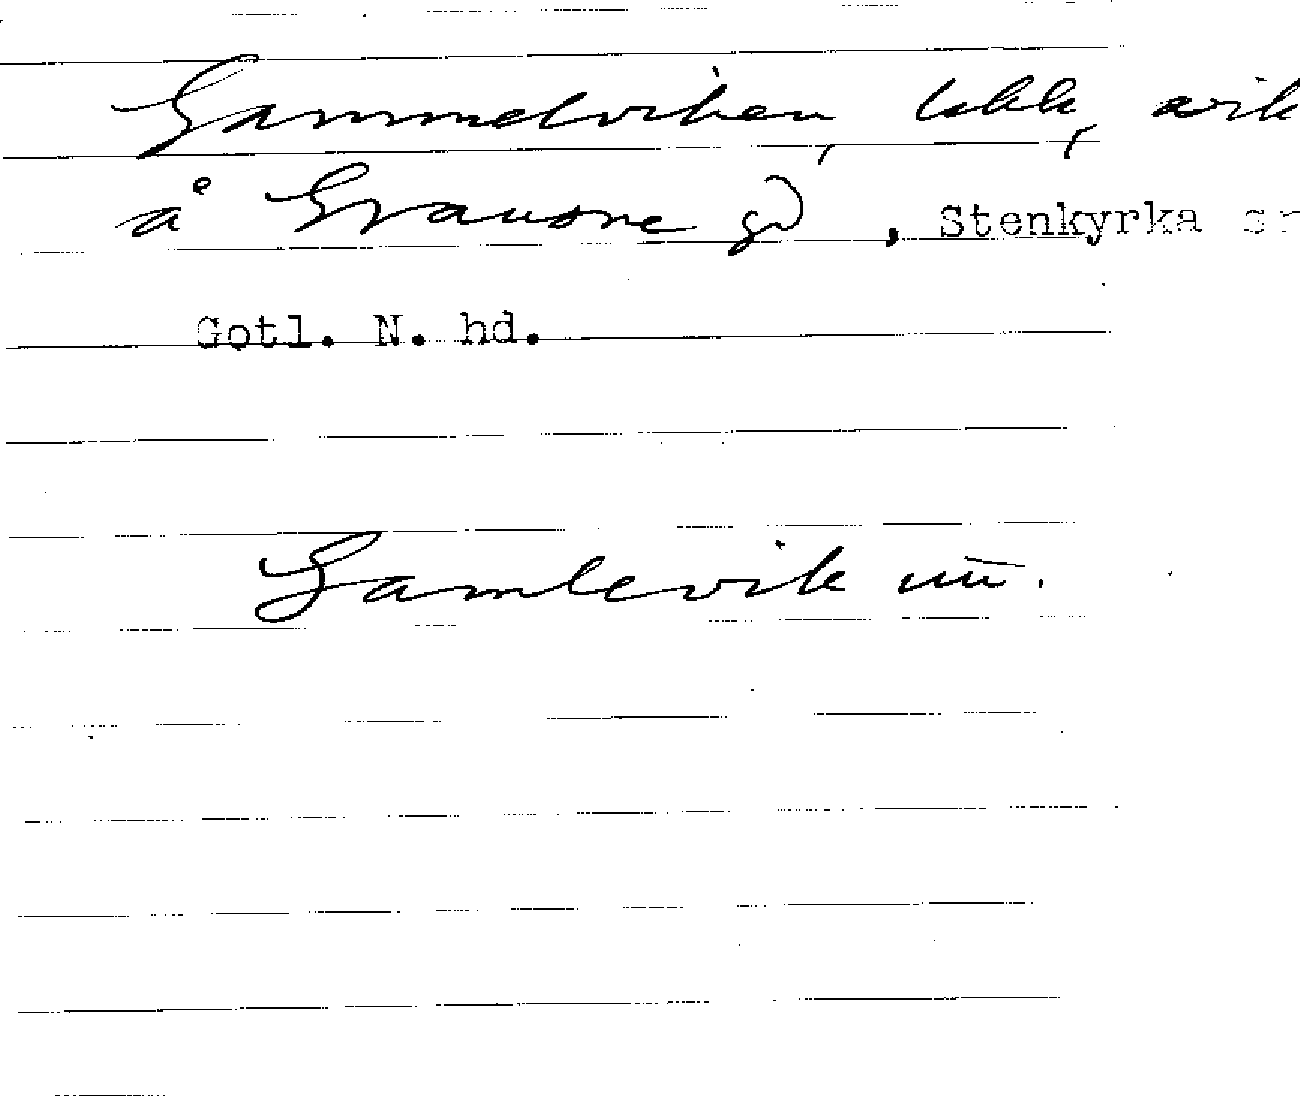 Gammelviken, lokk, vik
å Grausne gd, Stenkyrka sn
Gotl. N. hd.
Gamlevik